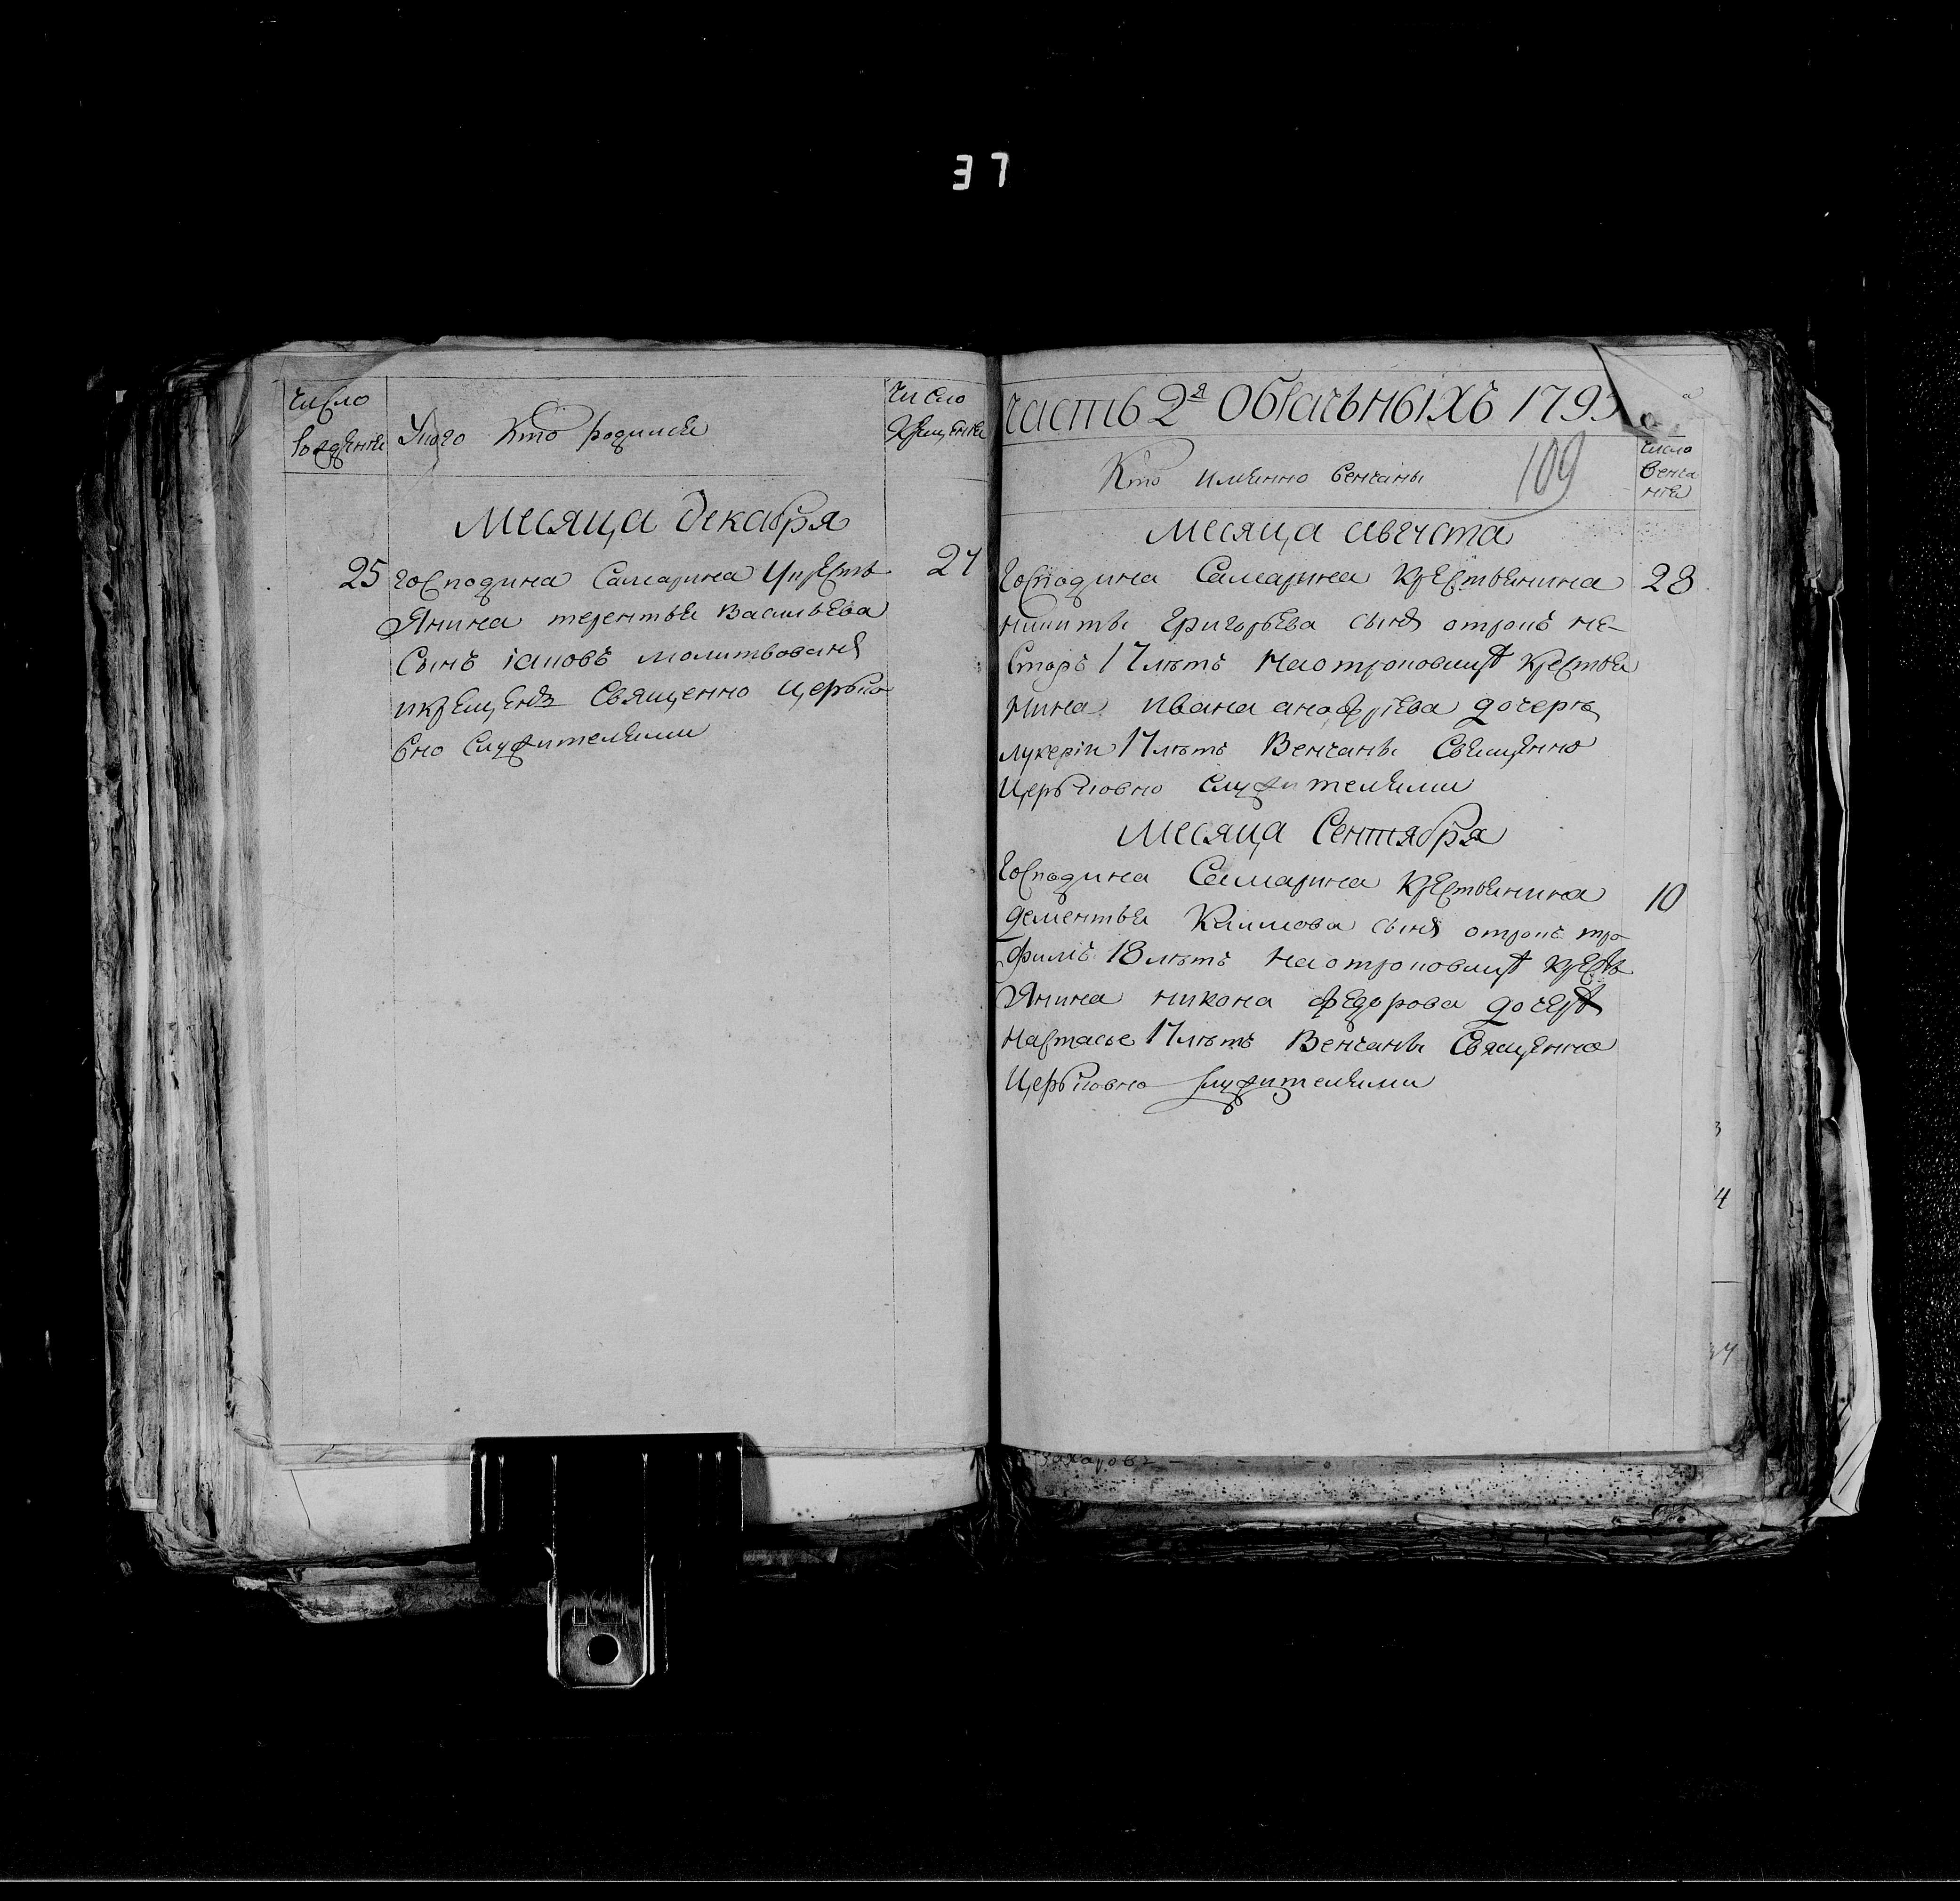 37
число
рожденiя
У кого кто родился
число
крещенiя
Месяца декабря
25 господина Самарина у крестъ 27
янина терентья Васильева
сынъ iаковъ молитвованъ
и крещенъ Священно церько
вно служителями
часть 2я Обрачьныхъ 1795
109
Кто имянно венчаны
число
венча
нiя
Месяца августа
господина Самарина крестьянина 28
никиты григорьева сынъ отрокъ не-
сторъ 17 летъ на отроковицѣ крестья
нина ивана анофрiева дочерѣ
лукерiи 17 летъ Венчаны Священно
церьковно служителями
Месяца Сентября
господина Самарина крестьянина 10
дементья Климова сынъ отрокъ тро
фимъ 18 летъ на отроковицѣ кресть
янина никона федорова дочерѣ
настасье 17 летъ Венчаны Священно
церьковно служителями
3
4
захаровъ